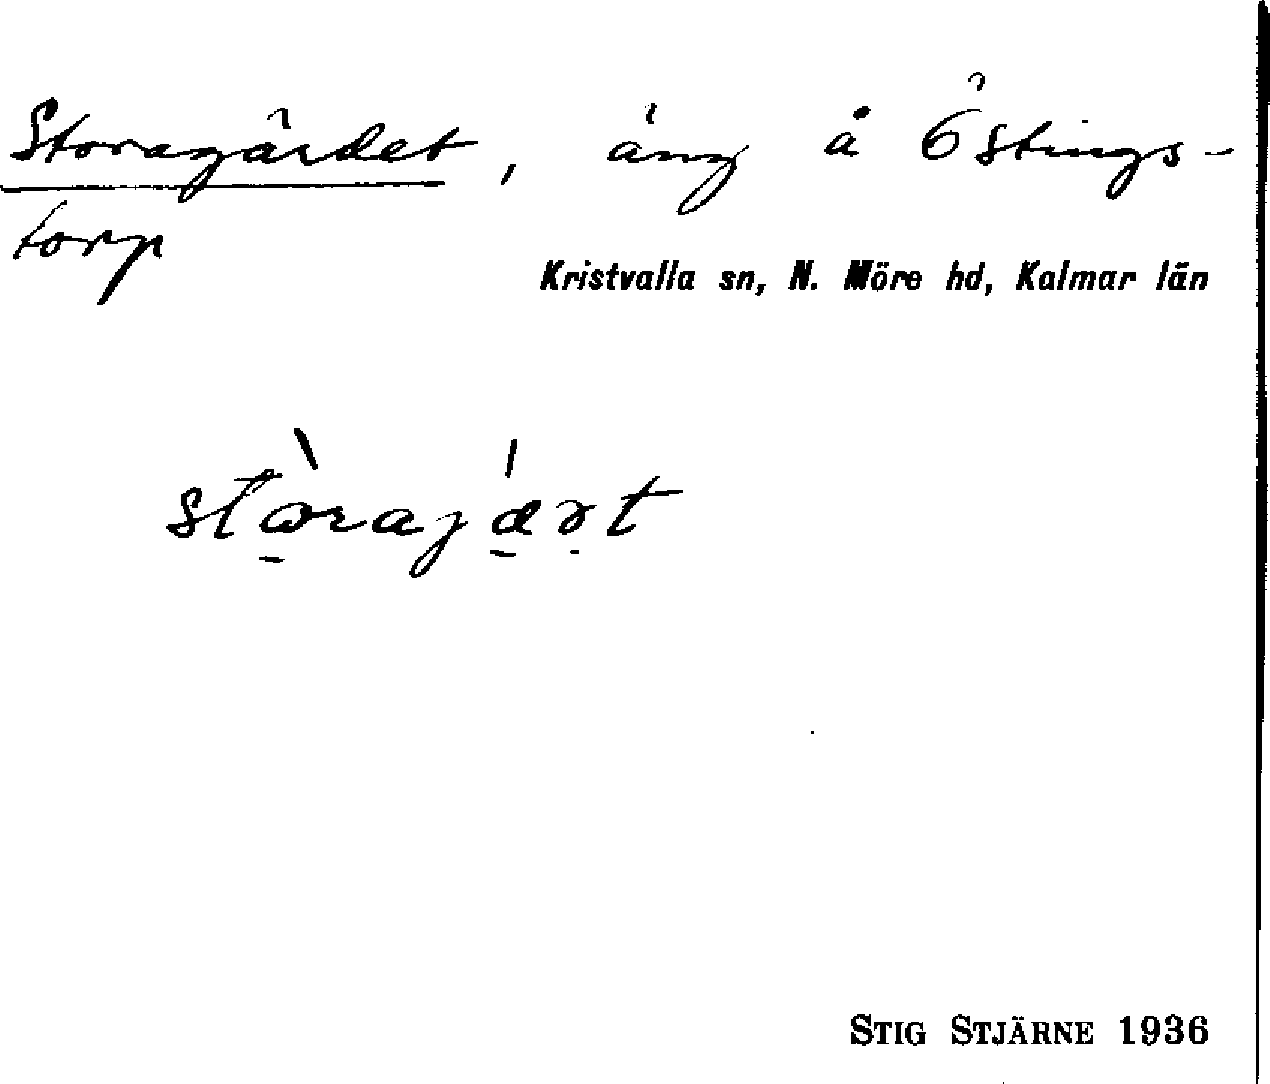 Storagärdet, äng å Östings-
torp
Kristvalla sn, N. Möre hd, Kalmar län
STIG STJÄRNE 1936